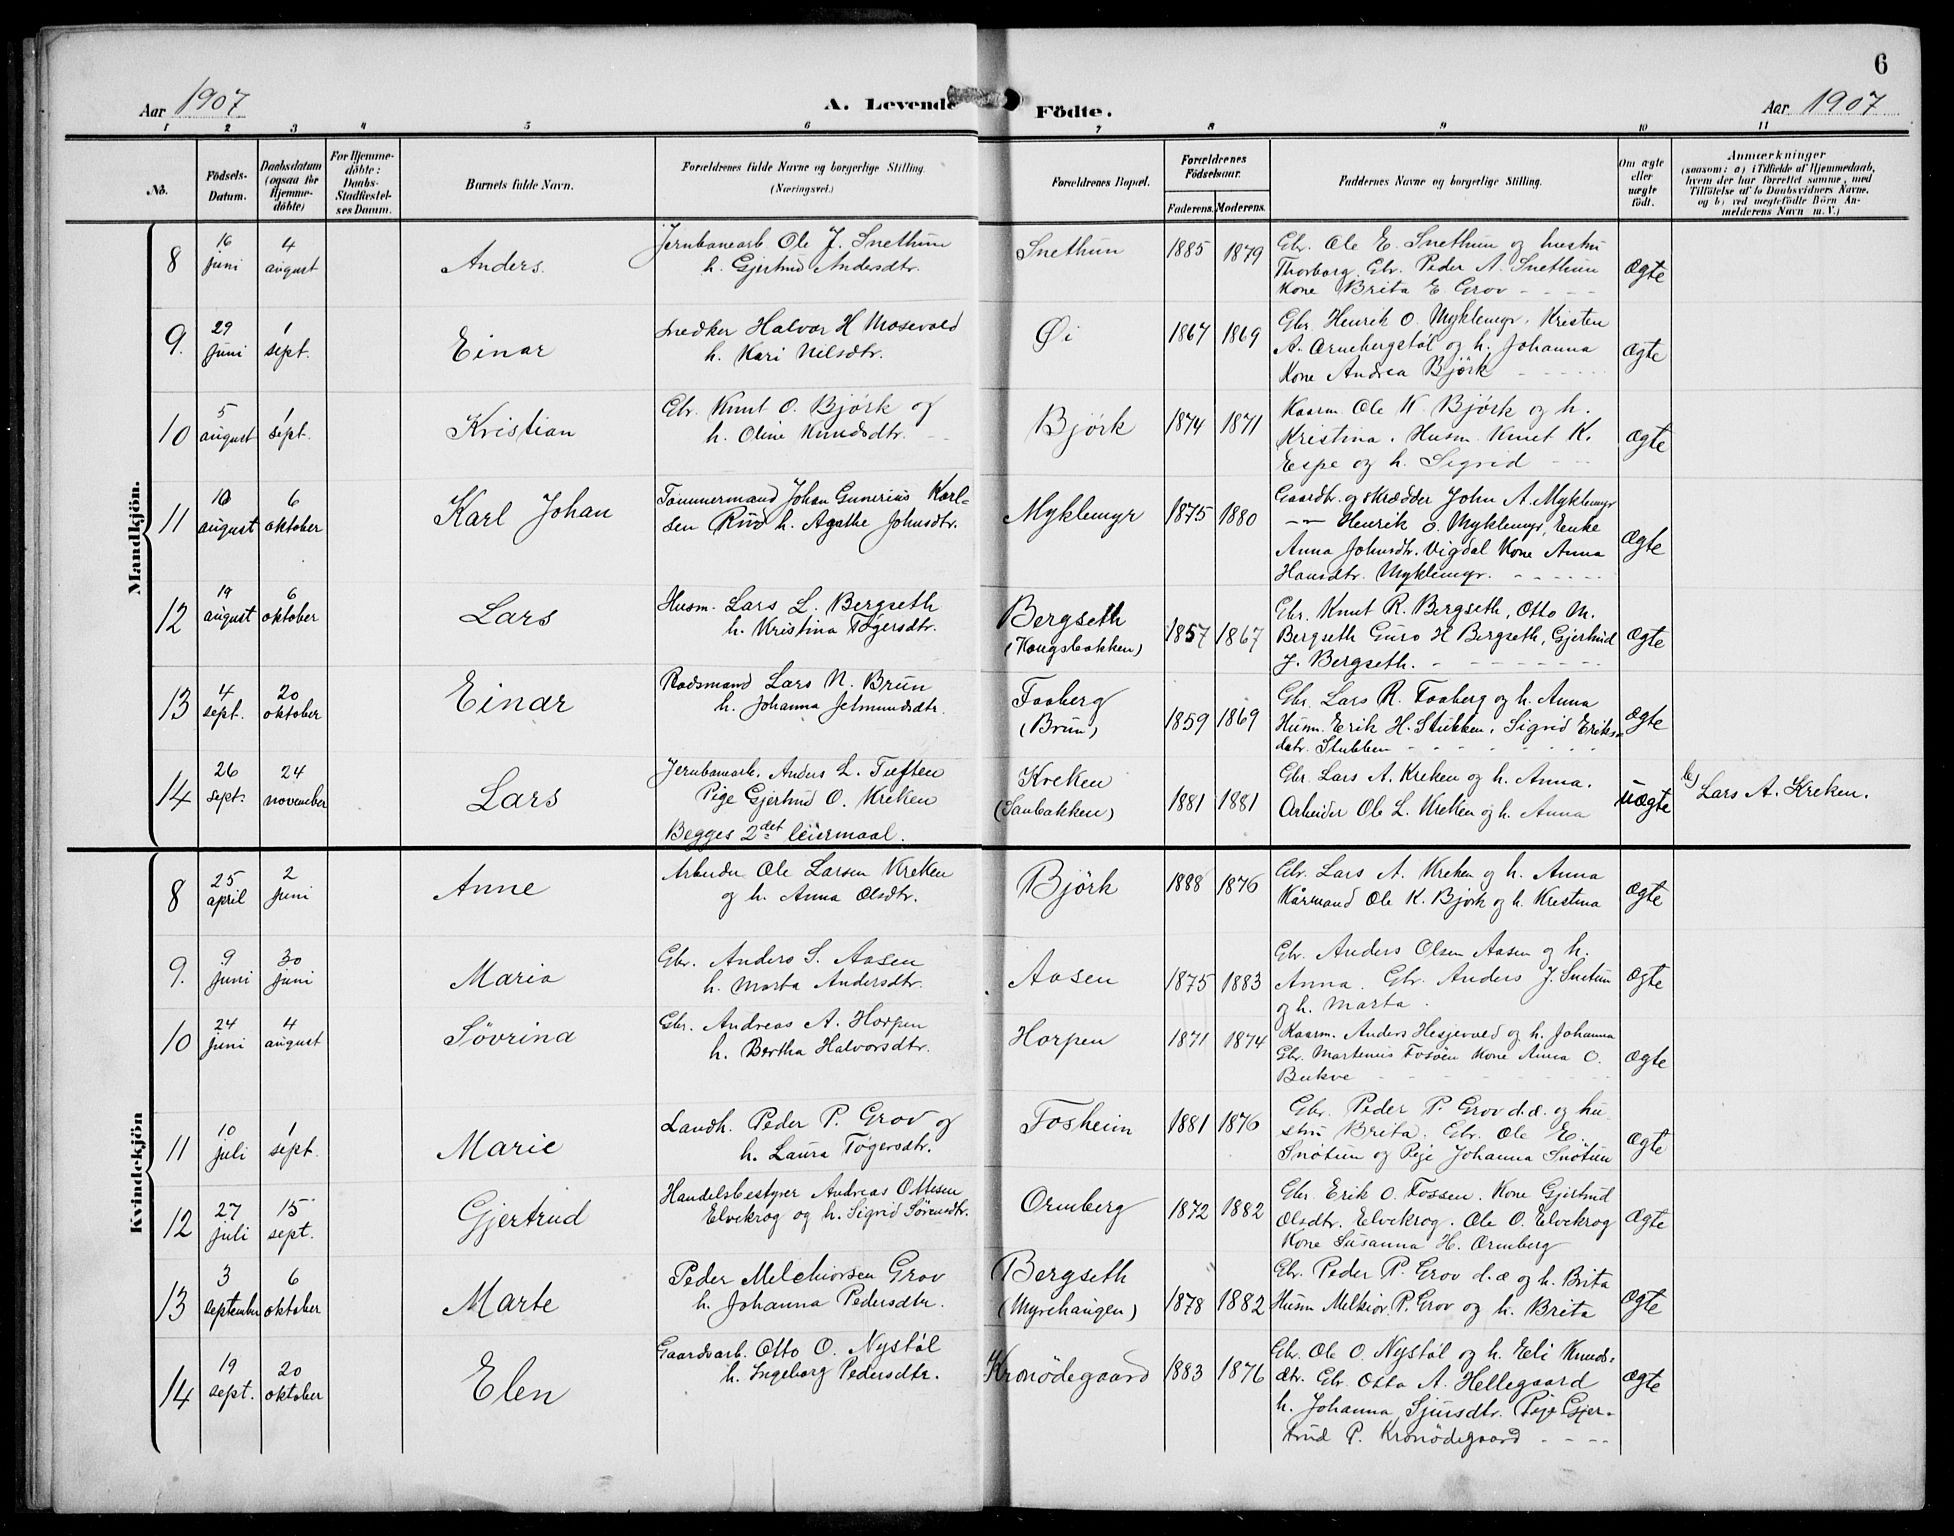 6
Aar 1907
A. Levende Födte.
Aar 1907
1 2 3 4 5 6 7 8 9 10 11
No.
Födsels-
Datum.
Daabsdatum
(ogsaa for
Hjemme-
döbte)
For Hjemme-
döbte:
Daabs-
Stadfæstel-
ses Datum.
Barnets fulde Navn.
Forældrenes fulde Navne og borgerlige Stilling
(Næringsvei.)
Forældrenes Bopæl.
Forældrenes
Födselsaar.
Faderens. Moderens.
Faddernes Navne og borgerlige Stilling.
Om ægte
eller
uægte
födt.
Anmærkninger
(saasom: a) i Tilfælde af Hjemmedaab,
hvem der har forrettet samme, med
Tilföielse af to Daabsvidners Navne,
og b) ved uægtefödte Börn An-
melderens Navn m. V.)
Mandkjön.
8
16
juni
4
august
Anders.
Jernbanearb. Ole J. Snethun
h. Gjertrud Andersdtr.
Snethun
1885 1879
Gbr. Ole E. Snethun og hustru
Thorborg. Gbr. Peder A. Snethun
Kone Brita E. Grov
Ægte
9.
29
juni
1
sept.
Einar
Snedker Halvor H Mosevold
h. Kari Nilsdtr.
Øi
1867 1869
Gbr. Henrik O. Myklemyr. Kristen
A. Ornebergstøl og h. Johanna
Kone Andrea Bjørk
Ægte
10
5
august
1
sept.
Kristian
Gbr. Knut O. Bjørk og
h. Oline Knudsdtr.
Bjørk
1874 1871
Kaarm. Ole K. Bjørk og h.
Kristina. Husm. Knut K.
Espe og h. Sigrid
Ægte
11
10
august
6
oktober
Karl Johan
Tømmermand Johan Gunerius Karl-
sen Rud h. Agathe Johnsdtr.
Myklemyr
1875 1880
Gaardbr. og skrædder John A. Myklemyr
—"— Henrik O. Myklemyr, Enke
Anna Johnsdtr. Vigdal Kone Anna
Hansdtr. Myklemyr.
Ægte
12
19
august
6
oktober
Lars
Husm. Lars L. Bergseth
h. Kristina Tøgersdtr.
Bergseth
(Kongsbakken)
1857 1867
Gbr. Knut R. Bergseth, Otto M.
Bergseth Guro H Bergseth, Gjertrud
J. Bergseth.
Ægte
13
4
sept.
20
oktober
Einar
Pladsmand Lars N. Brun
h. Johanna Jetmundsdtr.
Faaberg
(Brun)
1859 1869
Gbr. Lars R. Faaberg og h. Anna
Husm. Erik H. Stubben. Sigrid Eriks-
datr. Stubben
Ægte
14
26
sept.
24
november
Lars
Jernbanearb. Anders L. Tuften
Pige Gjertrud O. Kreken
Begges 2det leiermaal.
Kreken
(Sanbakken)
1881 1881
Gbr. Lars A. Kreken og h. Anna.
Arbeider Ole L. Kreken og h. Anna
uægte
b) Lars A. Kreken.
Kvindekjön
8
25
april
2
juni
Anne
Arbeider Ole Larsen Kreken
og h. Anna Olsdtr.
Bjørk
1888 1876
Gbr. Lars A. Kreken og h. Anna
Kårmand Ole K. Bjørk og h. Kristina
Ægte
9.
9
juni
30
juni
Maria
Gbr. Anders S. Aasen
h. Marta Andersdtr.
Aasen
1875 1883
Gbr. Anders Olsen Aasen og h.
Anna. Gbr. Anders J. Snetun
og h. Marta.
Ægte
10
24
juni
4
august
Søvrina
Gbr. Andreas A. Horpen
h. Bertha Halvorsdtr.
Horpen
1871 1874
Kaarm. Anders Hesjevold og h. Johanna
Gbr. Martinus Fosøen Kone Anna O.
Bukve
Ægte
11
10
juli
1
sept.
Marie
Landh. Peder P. Grov og
h. Laura Tøgersdtr.
Fosheim
1881 1876
Gbr. Peder P. Grov d.æ. og hu-
stru Brita. Gbr. Ole E.
Snøtun og Pige Johanna Snøtun
Ægte
12
27
juli
15
sept.
Gjertrud
Handelsbestyrer Andreas Ottesen
Elvekrog og h. Sigrid Sørensdtr.
Ormberg
1872 1882
Gbr. Erik O. Fossen. Kone Gjertrud
Olsdtr. Elvekrog. Ole O. Elvekrog
Kone Susanna H. Ormberg
Ægte
13
3
september
6
oktober
Marte
Peder Melchiorsen Grov
h. Johanna Pedersdtr.
Bergseth
(Myrehaugen)
1878 1882
Gbr. Peder P. Grov d.æ og h. Brita
Husm Melkior. P. Grov og h. Brita
Ægte
14
19
sept.
20
oktober
Elen
Gaardsarb. Otto O. Nystøl
h. Ingeborg Pedersdtr.
Kronødegaard
1883 1876
Gbr. Ole O. Nystøl og h. Eli Knuds-
dtr. Gbr. Otto A. Hellegaard
h. Johanna Sjursdtr. Pige Gjer-
trud P. Kronødegaard
Ægte